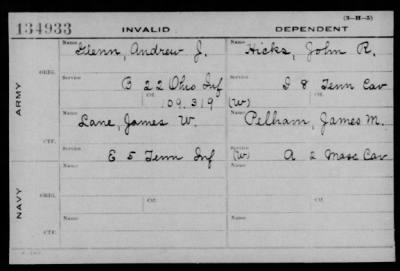 (3-H-5)
134933 INVALID DEPENDENT
Name Name
Glenn, Andrew J. Hicks, John R.
ORIG.
Service Service
B 22 Ohio Inf I 8 Tenn Cav
Of. Of.
109.319 (W)
ARMY
Name Name
Lane, James W. Pelham, James M.
CTF.
Service Service
E 5 Tenn Inf (W) A 2 Mass Cav
Name Name
ORIG.
NAVY
Of. Of.
Name Name
CTF.